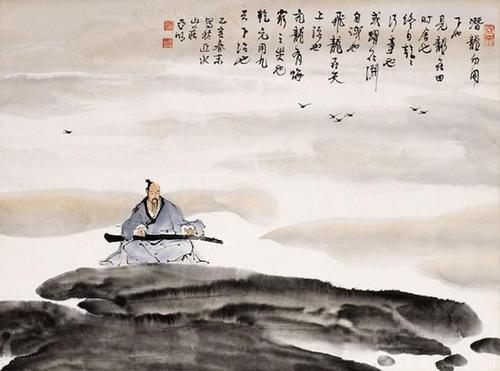 潛龍勿用
下也
見龍在田
时舍也
终日乾乾
行事也
或躍在淵
自試也
飛龍在天
上治也
亢龍有悔
窮之災也
乾元用九
天下治也
乙亥春末
寫於近水
山莊
亚明